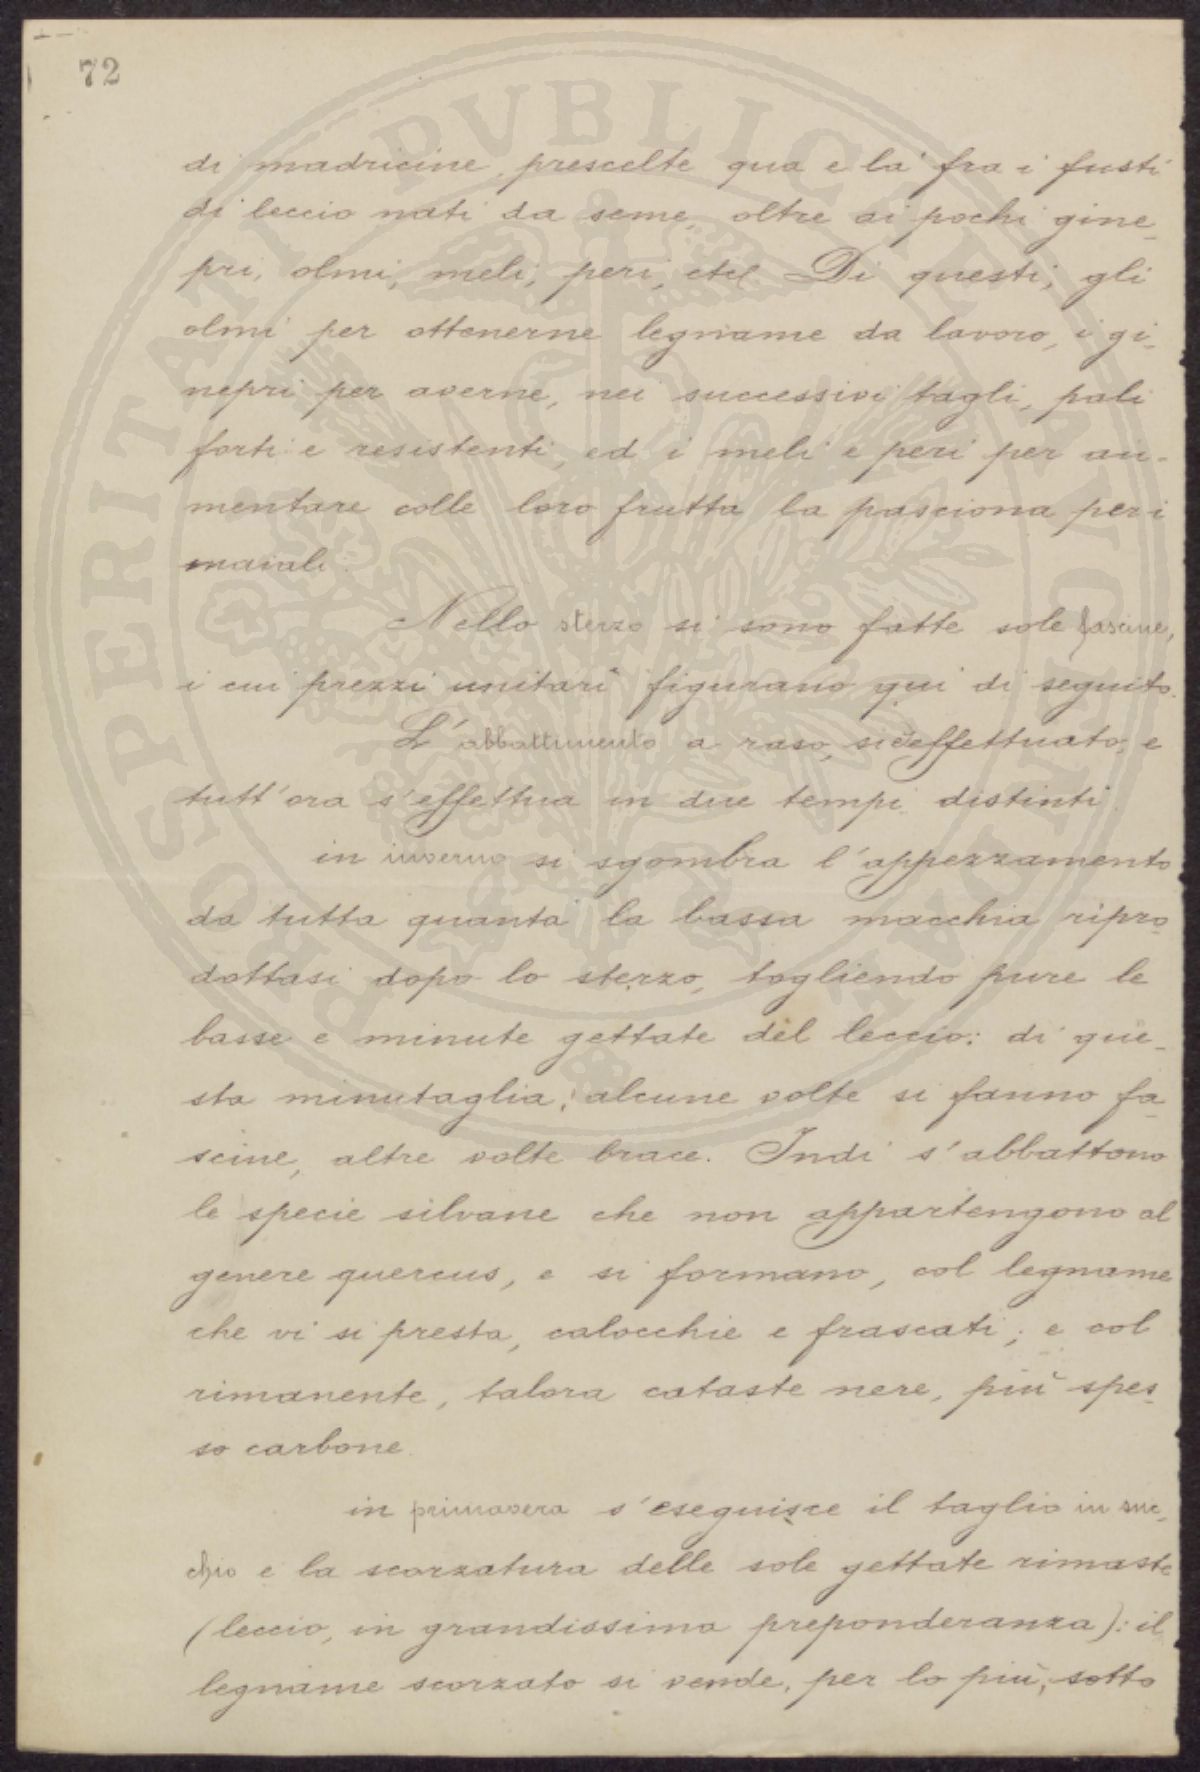 72
di madricine prescelte qua e là fra i fusti
di leccio nati da seme, oltre ai pochi gine_
pri, olmi, meli, peri, etc. Di questi, gli
olmi per ottenerne legname da lavoro, i gi_
nepri per averne, nei successivi tagli, pali
forti e resistenti, ed i meli e peri per au_
mentare colle loro frutta la pasciona per i
maiali.
Nello sterzo si sono fatte sole fascine,
i cui prezzi unitari figurano qui di seguito.
L'abbattimento a raso, si è effettuato, e
tutt'ora s'effettua in due tempi distinti.
in inverno si sgombra l'appezzamento
da tutta quanta la bassa macchia ripro_
dottasi dopo lo sterzo, togliendo pure le
basse e minute gettate del leccio: di que_
sta minutaglia, alcune volte si fanno fa_
scine, altre volte brace. Indi s'abbattono
le specie silvane che non appartengono al
genere quercus, e si formano, col legname
che vi si presta, calocchie e frascati; e col
rimanente, talora cataste nere, più spes_
so carbone.
in primavera s'eseguisce il taglio in suc_
chio e la scorzatura delle sole gettate rimaste
(leccio, in grandissima preponderanza): il
legname scorzato si vende, per lo più, sotto
PROSPERITATI PVBLICAE AVGENDAE